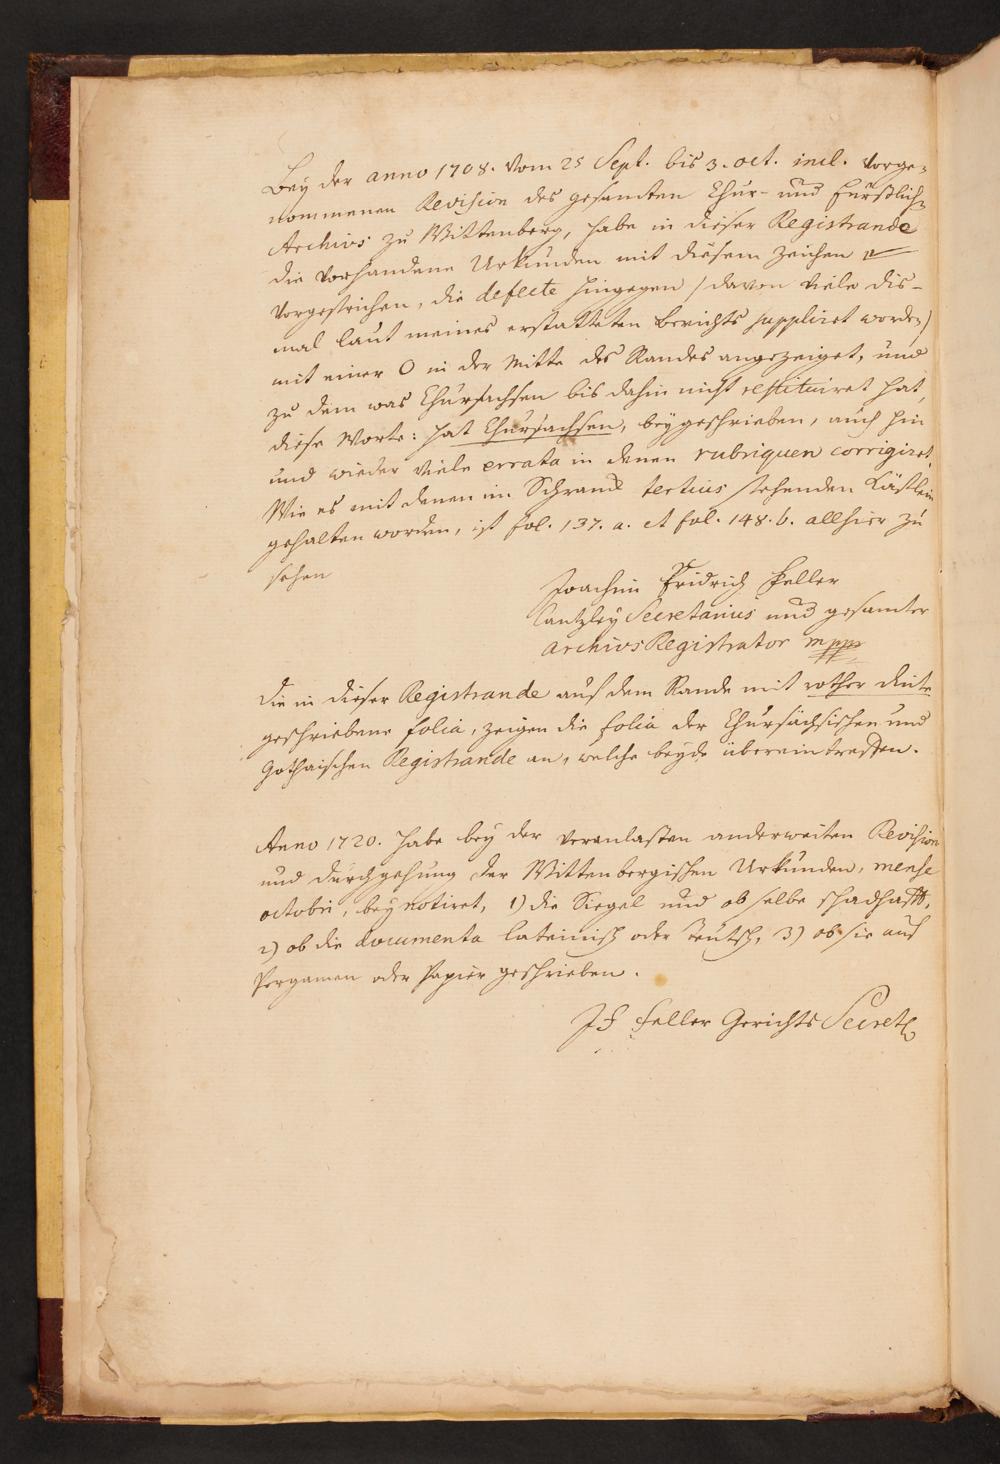 Bey der anno 1708. vom 25 Sept. bis 3. oct. incl. vorge-
nommenen Revision des gesamten Chur- und Fürstlich.
Archivs zu Wittenberg, habe in dieser Registrande
die vorhandene Urkunden mit diesem Zeichen
vorgestrichen, die defecte hingegen /davon viele dis-
mal laut meines erstatteten Berichts suppliret worden/
mit einer O in der Mitte des Randes angezeiget, und
zu dem was Chursachsen bis dahin nicht restituiret hat,
diese Worte: hat Chursachsen, beygeschrieben, auch hin
und wieder viele errata in denen rubriquen corrigiret.
Wie es mit denen im Schranck tertius stehenden Kästlein
gehalten worden, ist fol. 137. a. et fol. 148. b. allhier zu
sehen
Joachim Fridrich Feller
Cantzley Secretarius und gesamter
Archivs Registrator mppp
Die in dieser Registrande auf dem Rande mit rother Dinte
geschriebene folia, zeigen die folia der Chursächsischen und
Gothaischen Registrande an, welche beyde übereintreffen.
Anno 1720. habe bey der veranlasten anderweiten Revision
und Durchgehung der Wittenbergischen Urkunden, mense
octobri, bey notiret, 1) die Siegel und ob selbe schadhafft,
2) ob die documenta lateinisch oder teutsch, 3) ob sie auf
Pergamen oder Papier geschrieben.
JF Feller Gerichts Secret.